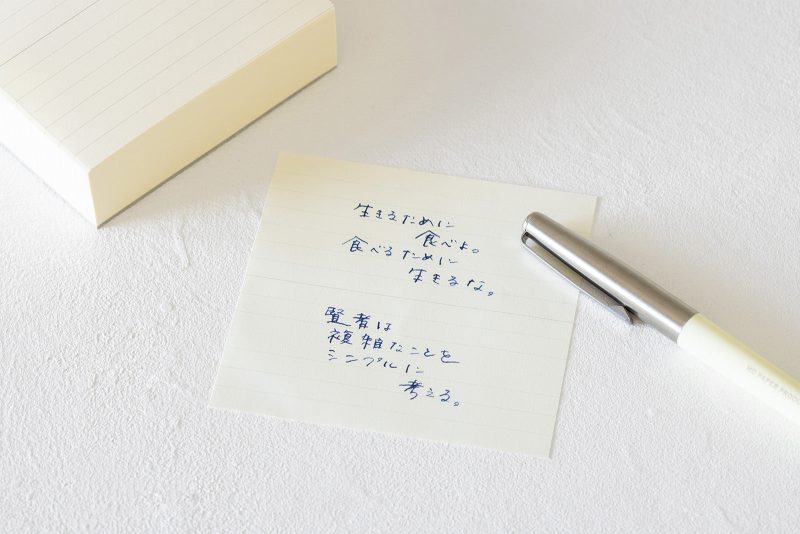 生きるために
食べよ。
食べるために
生きるな。
賢者は
複雑なことを
シンプルに
考える。
MD PAPER PRODUCTS